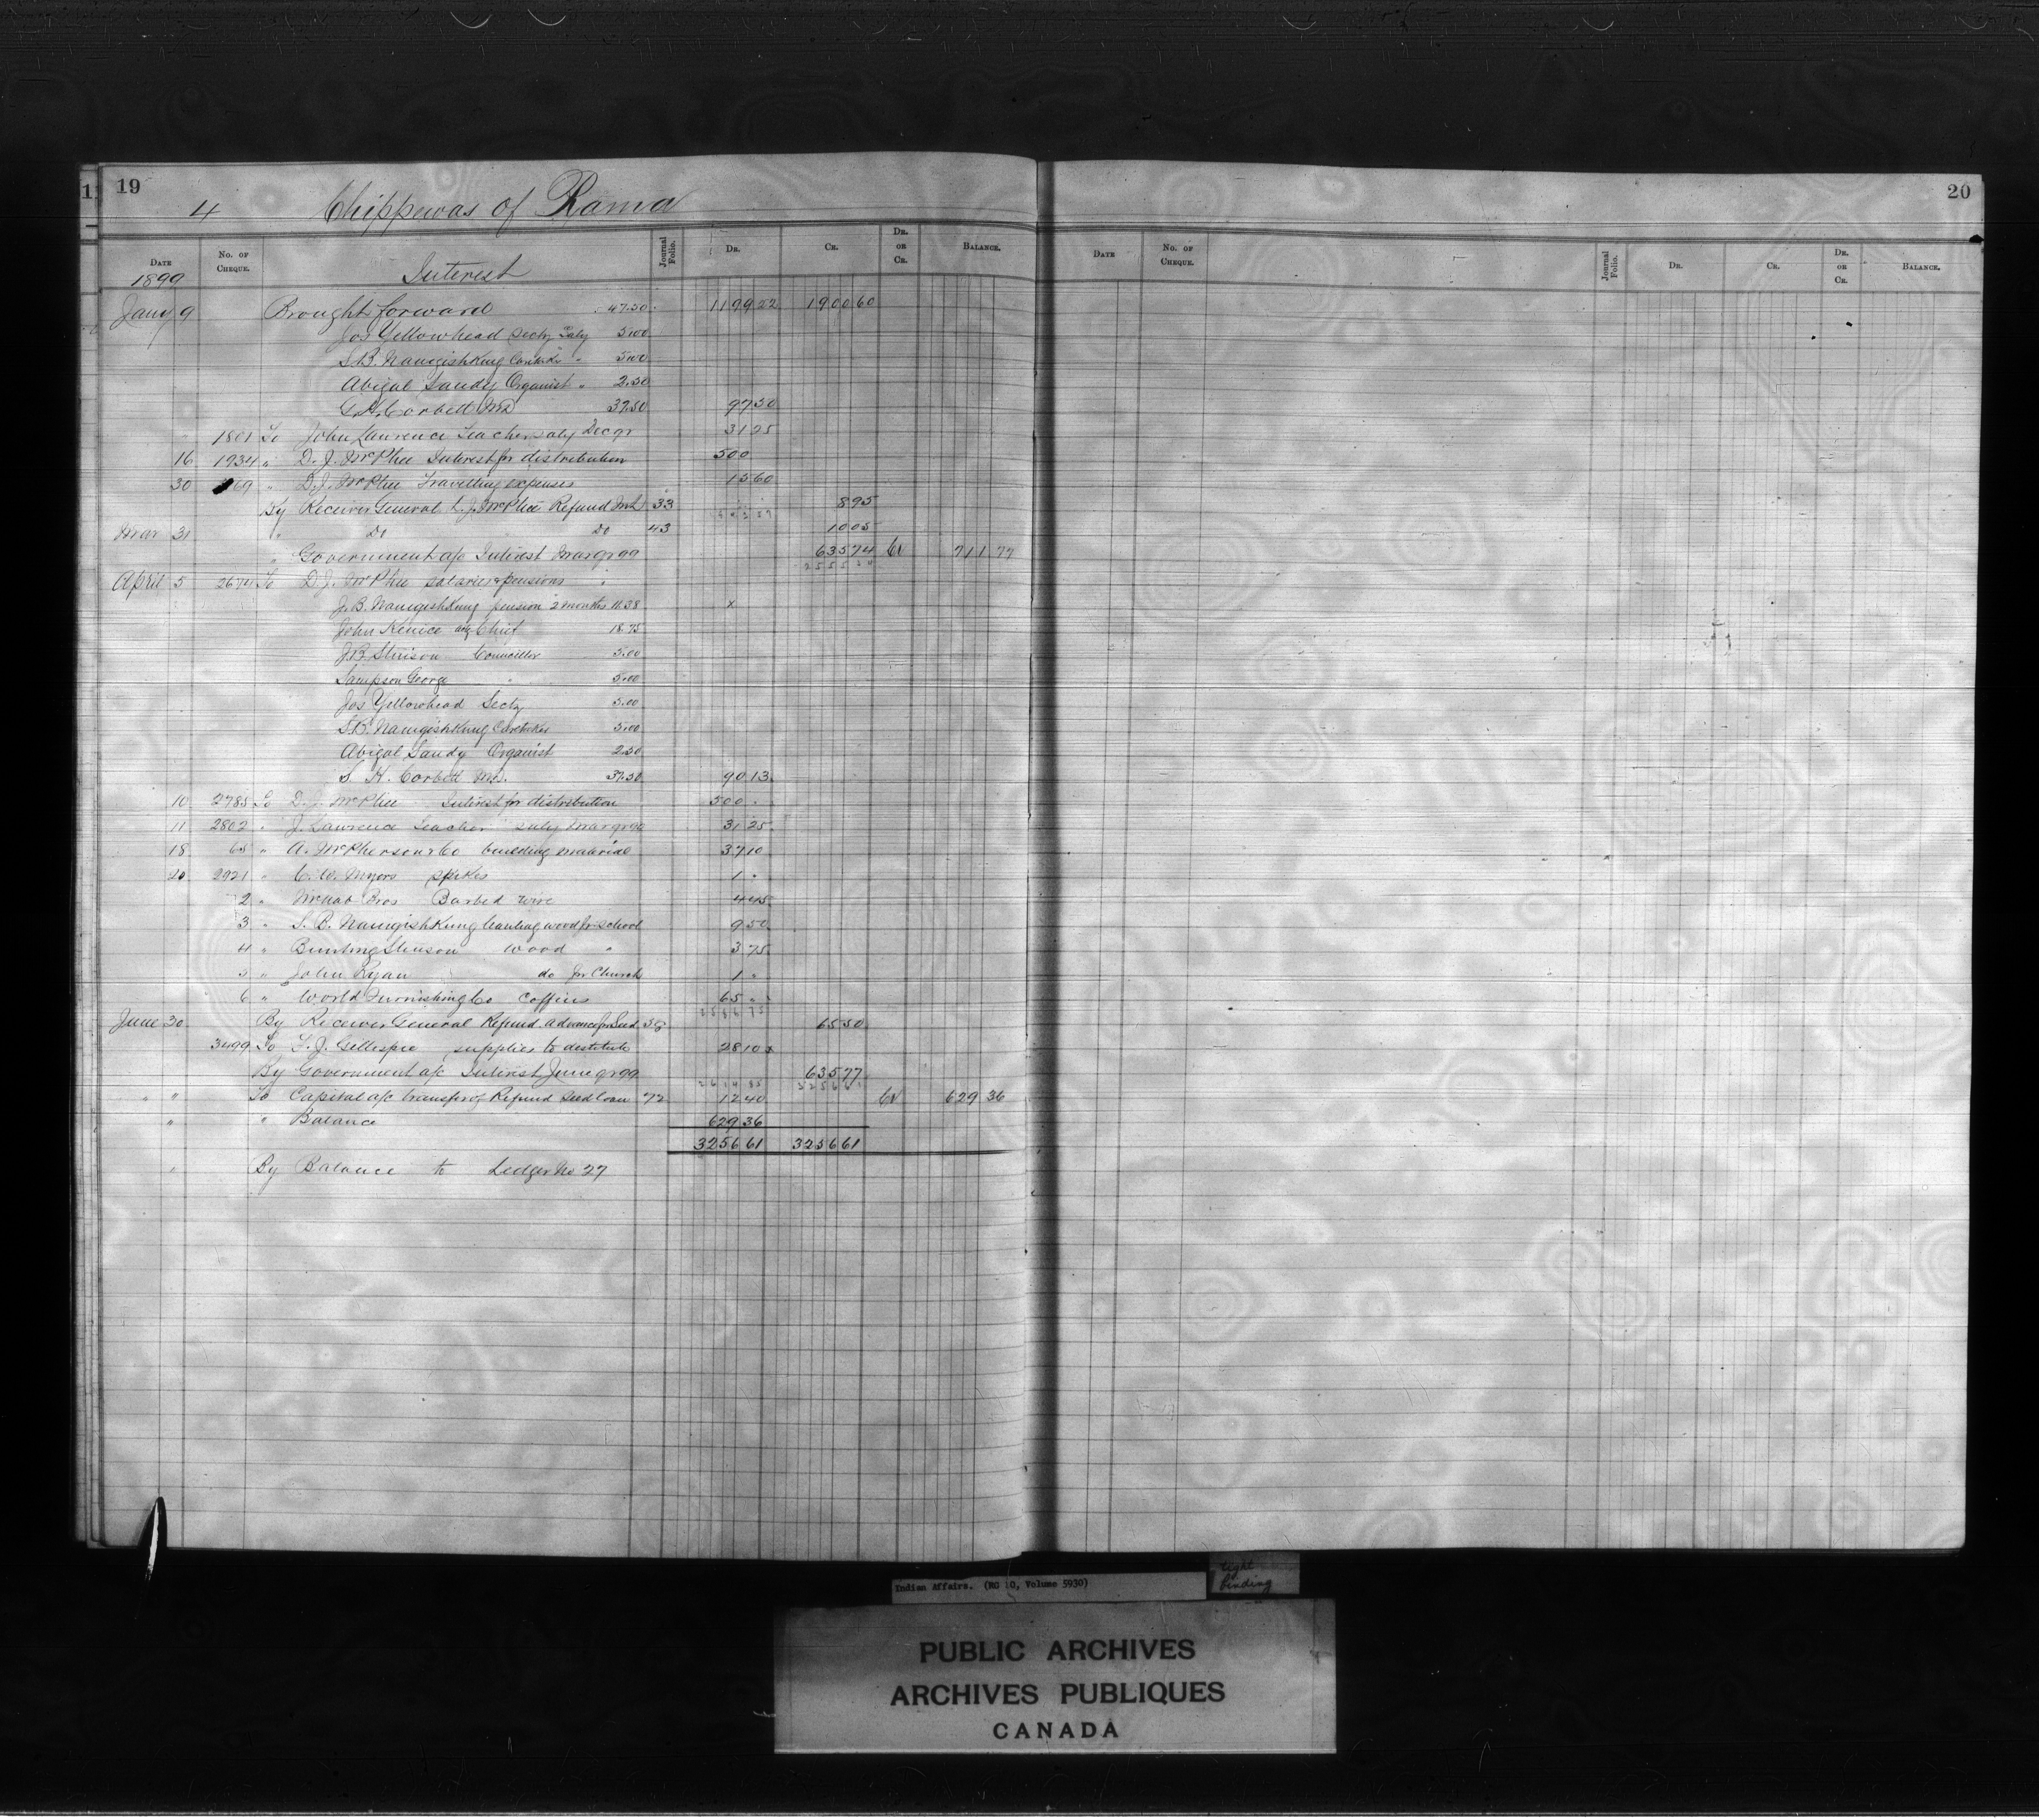 19
4 Chippewas of Rama
Date No. of Cheque. Interest Journal Folio. Dr. Cr. Dr. or Cr. Balance.
1899
Jany 9 Brought forward 47.50 1199 22 1900 60
Jos Yellowhead Secty Saly 5.00
S.B. Namgishkung Caretaker " 5.00
Abigal Sandy Organist " 2.50
G.H. Corbett MD 37.50 97 50
1801 To John Lawrence Teacher saly Dec qr 31 25
16 1934 " D. J. McPhee Interest for distribution 500
30 69 " D. J. McPhee Travelling expenses 15 60
By Receiver General D. J. McPhee Refund Int 33 8 95
Mar 31 " Do Do 43 10 05
" Government a/c Interest Mar qr 99 635 74 Cr 711 77
April 5 2674 To D. J. McPhee salaries & pensions "
J. B. Namgishkung pension 2 months 11.38 x
John Kenice actg Chief 18.75
J.B. Stinson Councillor 5.00
Sampson George " 5.00
Jos Yellowhead Secty 5.00
S.B. Namgishkung Caretaker 5.00
Abigal Sandy Organist 2.50
G. H. Corbett MD. 37.50 90 13
10 2785 To D. J. McPhee Interest for distribution 500 "
11 2802 " J. Lawrence Teacher saly Mar qr 99 31 25
18 65 " A. McPherson & Co building material 37 10
20 2921 " C. W. Myers spikes 1 "
2 " McNab Bros Barbed wire 4 45
3 " S. B. Namgishkung hauling wood for school 9 50
4 " Bunting Stinson wood " 3 75
5 " John Ryan do for Church 1 "
6 " World Furnishing Co Coffins 65 "
June 30 By Receiver General Refund advance for Seed 58 65 50
3499 To T. J. Gillespie supplies to destitute 28 10 x
By Government a/c Interest June qr 99 635 77
" " To Capital a/c transfer of Refund Seed loan 72 12 40 Cr 629 36
" " Balance 629 36
3256 61 3256 61
" By Balance to Ledger No 27
20
Date No. of Cheque. Journal Folio. Dr. Cr. Dr. or Cr. Balance.
Indian Affairs. (RG 10, Volume 5930)
tight binding
PUBLIC ARCHIVES
ARCHIVES PUBLIQUES
CANADA